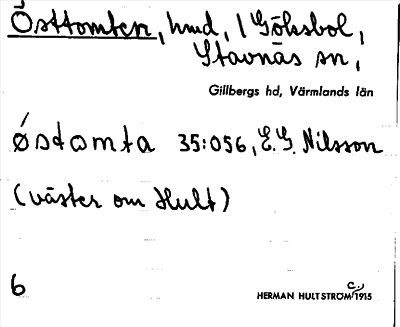 Östtomten, hmd, 1 Göksbol,
Stavnäs sn,
Gillbergs hd, Värmlands län
østomta 35:056, E.G. Nilsson
(väster om Hult)
6
HERMAN HULTSTRÖM 1915